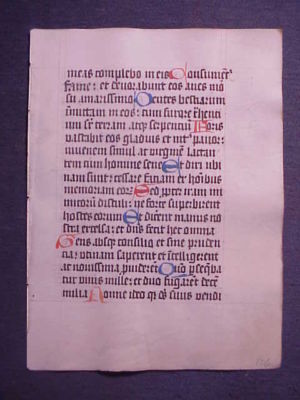 meas complebo in eis Consument᷑
fame: et devorabunt eos aves mo
su amarissimo Dentes bestiarum
inmittam in eos: cum furore trahenti
um sup̄ terram atq̨ serpentiū Foris
vastabit eos gladius et int᷒ pavor:
iuvenem simul ac virginē lactan
tem cum homine sene Et dixi ubi
nam sunt: cessare faciam ex hoībus
memoriam eoꝝ Sed ꝓpter iram ini
micorū distuli: ne forte superbirent
hostes eorum Et dicerent manus no
stra excelsa: et dn̄s fecit hec omnia
Gens absq̨ consilio et sine pruden
cia: utinam saperent et intelligerent
ac novissima ꝓviderēt Quō ꝑseq̄ba
tur unus mille: et duo fugarēt decē
milia Nonne ideo q̄ ds̄ suus vendi